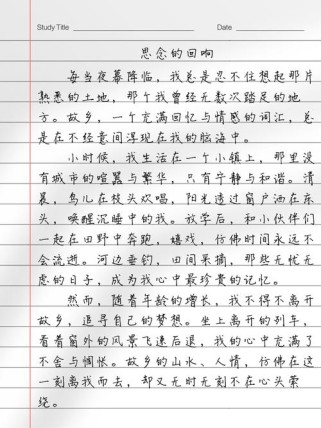 Study Title
Date
思念的回响
每当夜幕降临，我总是忍不住想起那片
熟悉的土地，那个我曾经无数次踏足的地
方。故乡，一个充满回忆与情感的词汇，总
是在不经意间浮现在我的脑海中。
小时候，我生活在一个小镇上，那里没
有城市的喧嚣与繁华，只有宁静与和谐。清
晨，鸟儿在枝头欢唱，阳光透过窗户洒在床
头，唤醒沉睡中的我。放学后，和小伙伴们
一起在田野中奔跑，嬉戏，仿佛时间永远不
会流逝。河边垂钓，田间采摘，那些无忧无
虑的日子，成为我心中最珍贵的记忆。
然而，随着年龄的增长，我不得不离开
故乡，追寻自己的梦想。坐上离开的列车，
看着窗外的风景飞速后退，我的心中充满了
不舍与惆怅。故乡的山水、人情，仿佛在这
一刻离我而去，却又无时无刻不在心头萦
绕。